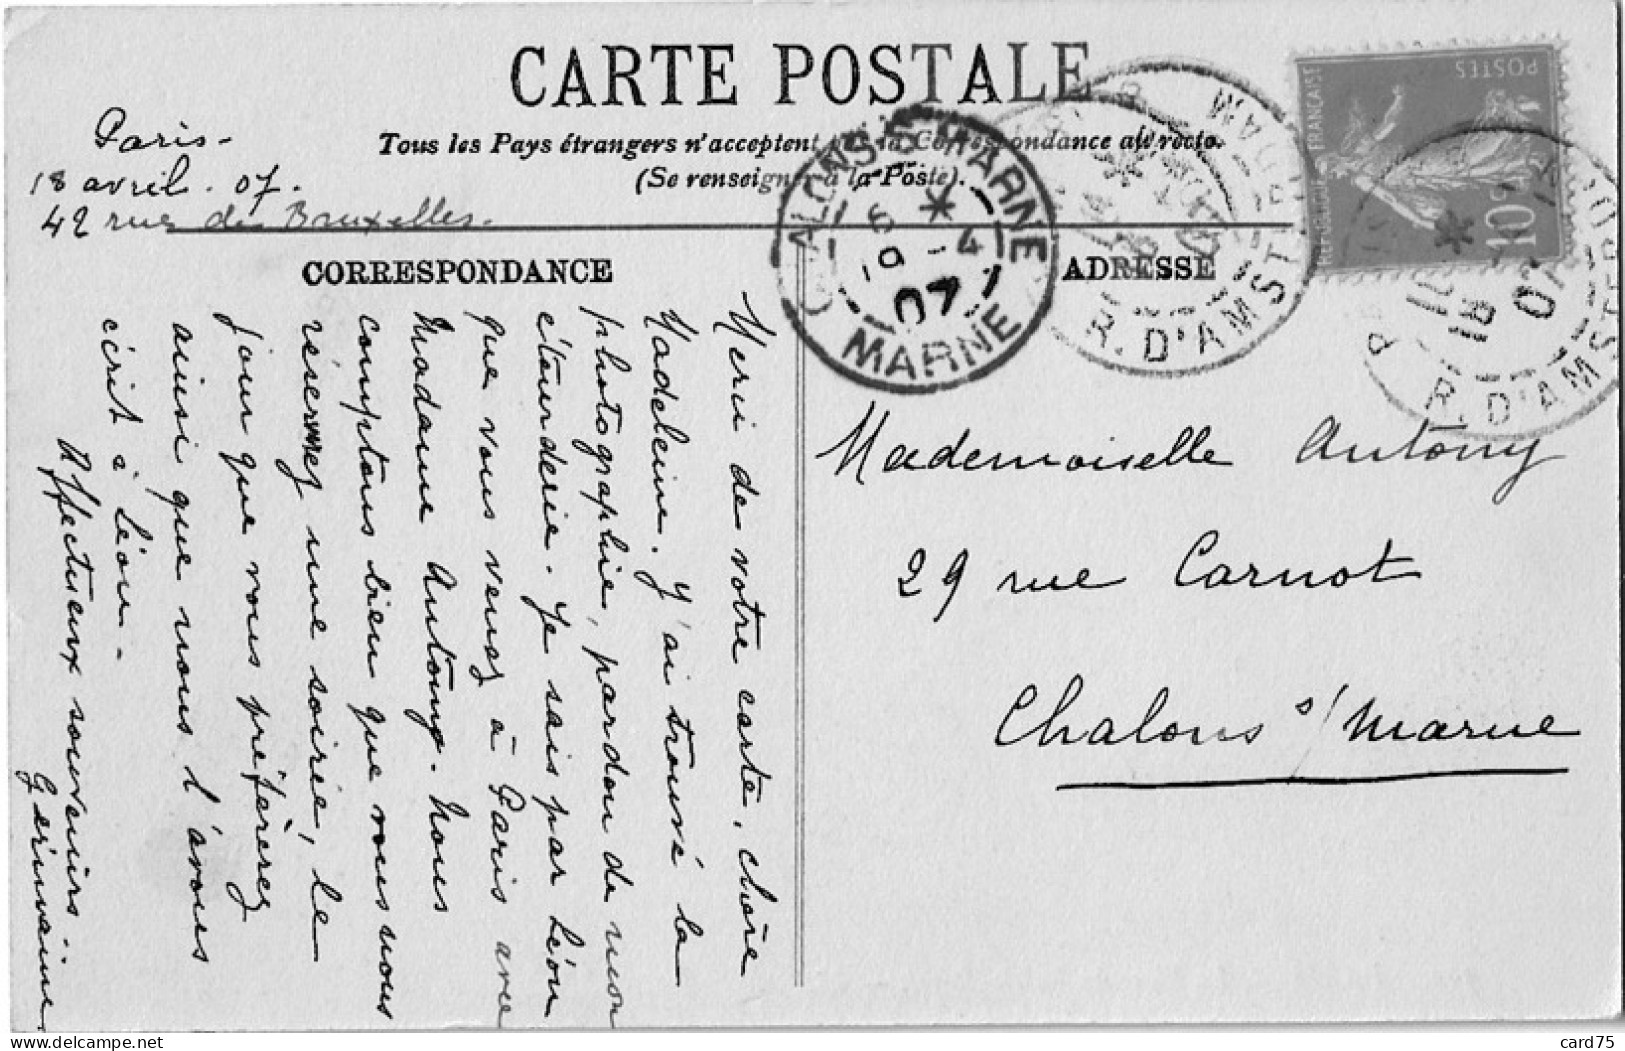 CARTE POSTALE
Tous les Pays étrangers n'acceptent pas la Correspondance au recto.
(Se renseigner à la Poste).
Paris-
18 avril. 07.
42 rue de Bruxelles-
CORRESPONDANCE
ADRESSE
Merci de votre carte, chère
Madeleine. J'ai trouvé la
photographie, pardon de mon
étourderie. Je sais par Léon
que vous venez à Paris avec
Madame Antony. Nous
comptons bien que vous nous
réserverez une soirée, le
jour que vous préfèrerez
ainsi que nous l'avons
écrit à Léon-
Affectueux souvenirs
Germaine
Mademoiselle Antony
29 rue Carnot
Chalons s/ Marne
CHALONS-S-MARNE
MARNE
07
R. D'AMSTERDAM
R. D'AMSTERDAM
18
07
POSTES
FRANÇAISE
10c
delcampe.net
card75